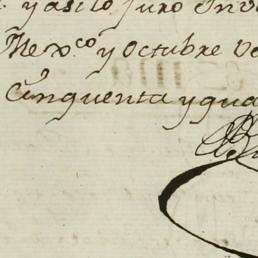 y asi lo juro en
Mex.co y Octubre
Cinquenta y qua